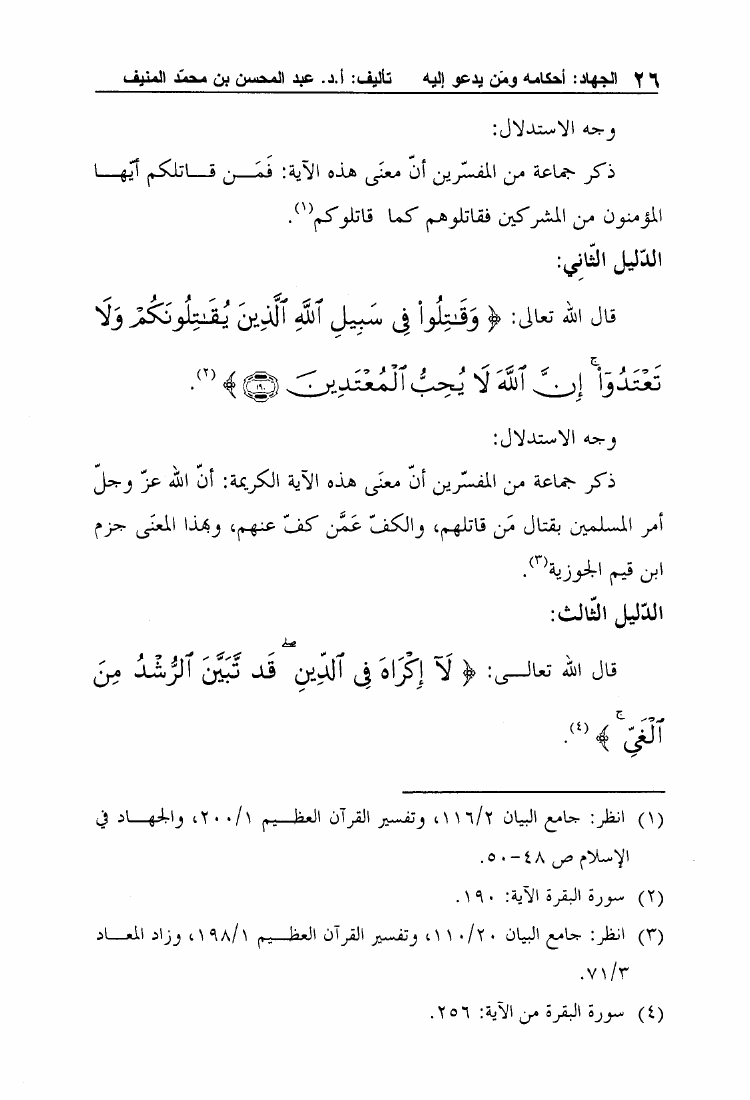 ٢٦ الجهاد: أحكامه ومَن يدعو إليه تأليف: أ.د. عبد المحسن بن محمّد المنيف
وجه الاستدلال:
ذكر جماعة من المفسّرين أنّ معنَى هذه الآية: فَمَــن قــاتلكم أيّهــا
المؤمنون من المشركين فقاتلوهم كما قاتلوكم(١).
الدّليل الثّانِي:
قال الله تعالى: ﴿ وَقَٰتِلُوا۟ فِى سَبِيلِ ٱللَّهِ ٱلَّذِينَ يُقَٰتِلُونَكُمْ وَلَا
تَعْتَدُوٓا۟ ۚ إِنَّ ٱللَّهَ لَا يُحِبُّ ٱلْمُعْتَدِينَ ١٩٠ ﴾(٢).
وجه الاستدلال:
ذكر جماعة من المفسّرين أنّ معنَى هذه الآية الكريمة: أنّ الله عزّ وجلّ
أمر المسلمين بقتال مَن قاتلهم، والكفّ عَمَّن كفّ عنهم، وبهذا المعنَى جزم
ابن قيم الجوزية(٣).
الدّليل الثّالث:
قال الله تعالــى: ﴿ لَآ إِكْرَاهَ فِى ٱلدِّينِ ۖ قَد تَّبَيَّنَ ٱلرُّشْدُ مِنَ
ٱلْغَىِّ ۚ ﴾(٤).
(١) انظر: جامع البيان ١١٦/٢، وتفسير القرآن العظــيم ٢٠٠/١، والجهــاد في
الإسلام ص ٤٨-٥٠.
(٢) سورة البقرة الآية: ١٩٠.
(٣) انظر: جامع البيان ١١٠/٢٠، وتفسير القرآن العظــيم ١٩٨/١، وزاد المعــاد
٧١/٣.
(٤) سورة البقرة من الآية: ٢٥٦.